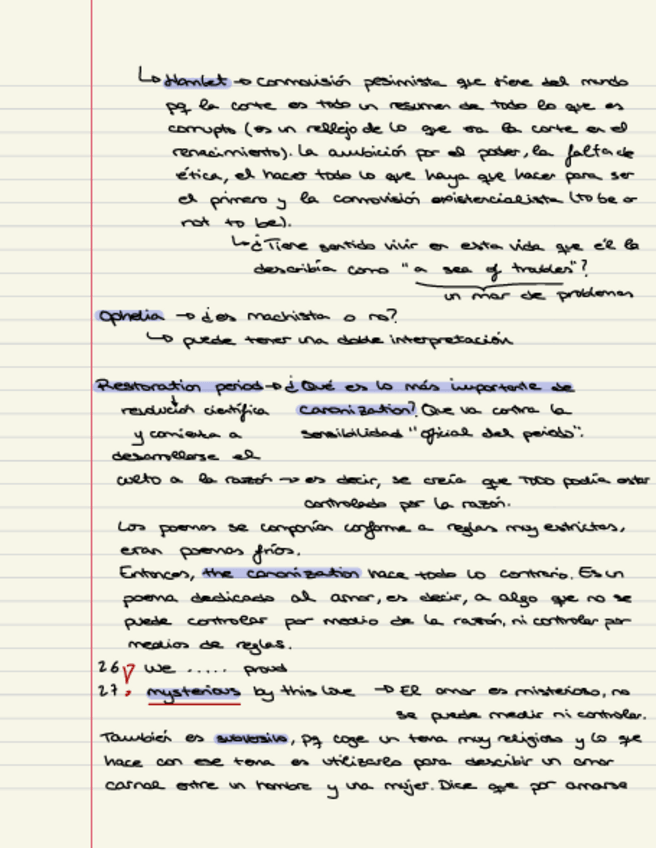 ↳ Hamlet → cosmovisión pesimista que tiene del mundo
pq la corte es todo un resumen de todo lo que es
corrupto (es un reflejo de lo que era la corte en el
renacimiento). La ambición por el poder, la falta de
ética, el hacer todo lo que haya que hacer para ser
el primero y la cosmovisión existencialista (to be or
not to be).
↳ ¿Tiene sentido vivir en esta vida que él la
describía como "a sea of troubles"?
un mar de problemas
Ophelia → ¿es machista o no?
↳ puede tener una doble interpretación
Restoration period → ¿Qué es lo más importante de
revolución científica canonization? Que va contra la
y comienza a sensibilidad "oficial del periodo".
desarrollarse el
culto a la razón → es decir, se creía que TODO podía estar
controlado por la razón.
Los poemas se componían conforme a reglas muy estrictas,
eran poemas fríos.
Entonces, the canonization hace todo lo contrario. Es un
poema dedicado al amor, es decir, a algo que no se
puede controlar por medio de la razón, ni controlar por
medios de reglas.
26 We ..... proud
27 mysterious by this love → El amor es misterioso, no
se puede medir ni controlar.
También es subversivo, pq coge un tema muy religioso y lo que
hace con ese tema es utilizarlo para describir un amor
carnal entre un hombre y una mujer. Dice que por amarse